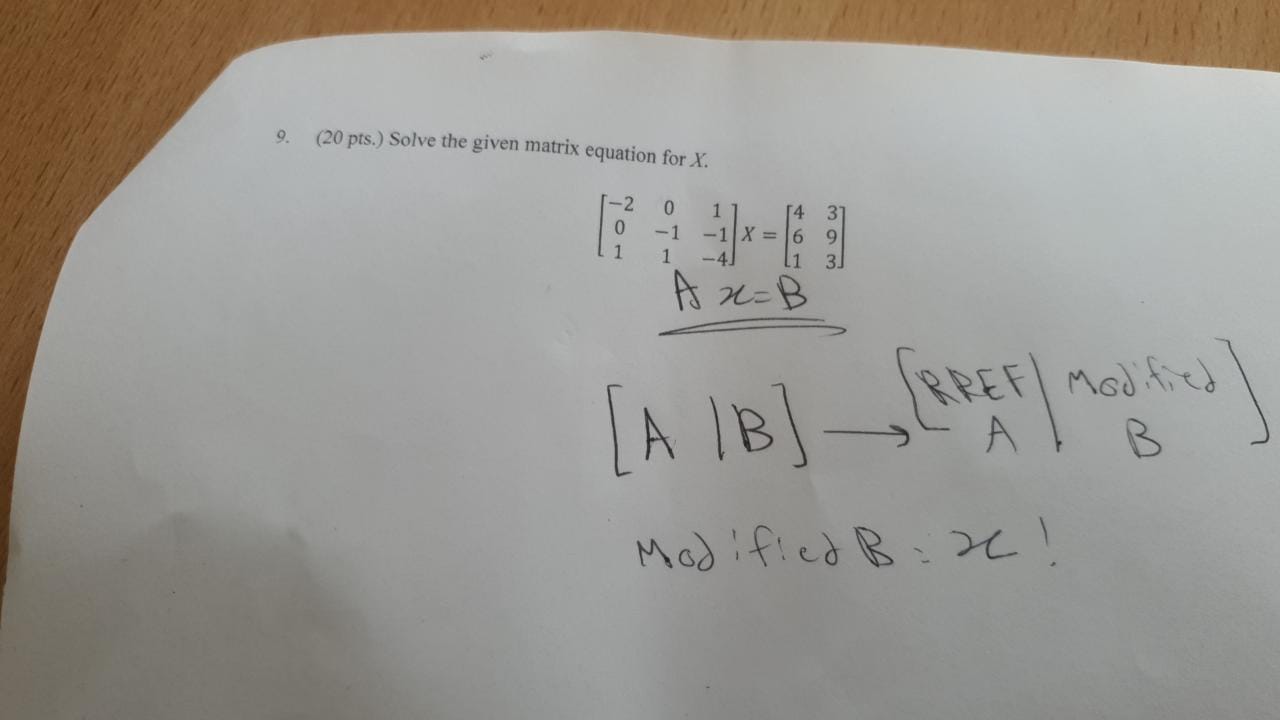 9. (20 pts.) Solve the given matrix equation for X.
[-2 0 1] [4 3]
[0 -1 -1] X = [6 9]
[1 1 -4] [1 3]
A x = B
[A | B] → [RREF A | Modified B]
Modified B = x !